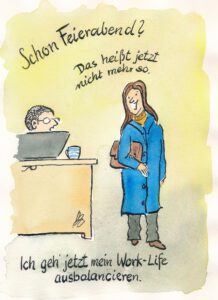 Schon Feierabend?
Das heißt jetzt
nicht mehr so.
Ich geh jetzt mein Work-Life
ausbalancieren.